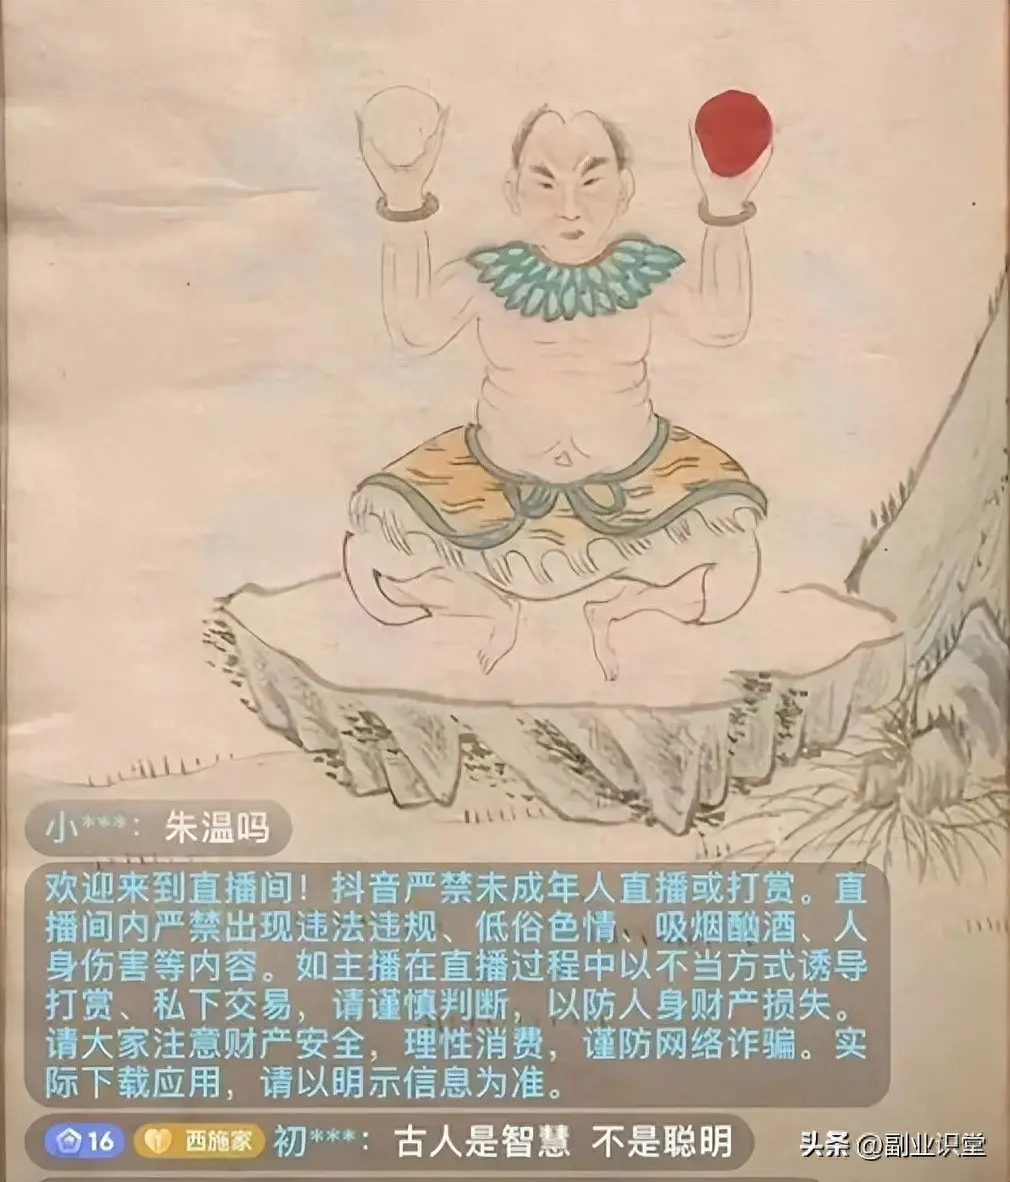 小***：朱温吗
欢迎来到直播间！抖音严禁未成年人直播或打赏。直
播间内严禁出现违法违规、低俗色情、吸烟酗酒、人
身伤害等内容。如主播在直播过程中以不当方式诱导
打赏、私下交易，请谨慎判断，以防人身财产损失。
请大家注意财产安全，理性消费，谨防网络诈骗。实
际下载应用，请以明示信息为准。
16 西施家 初***：古人是智慧 不是聪明
头条 @副业识堂